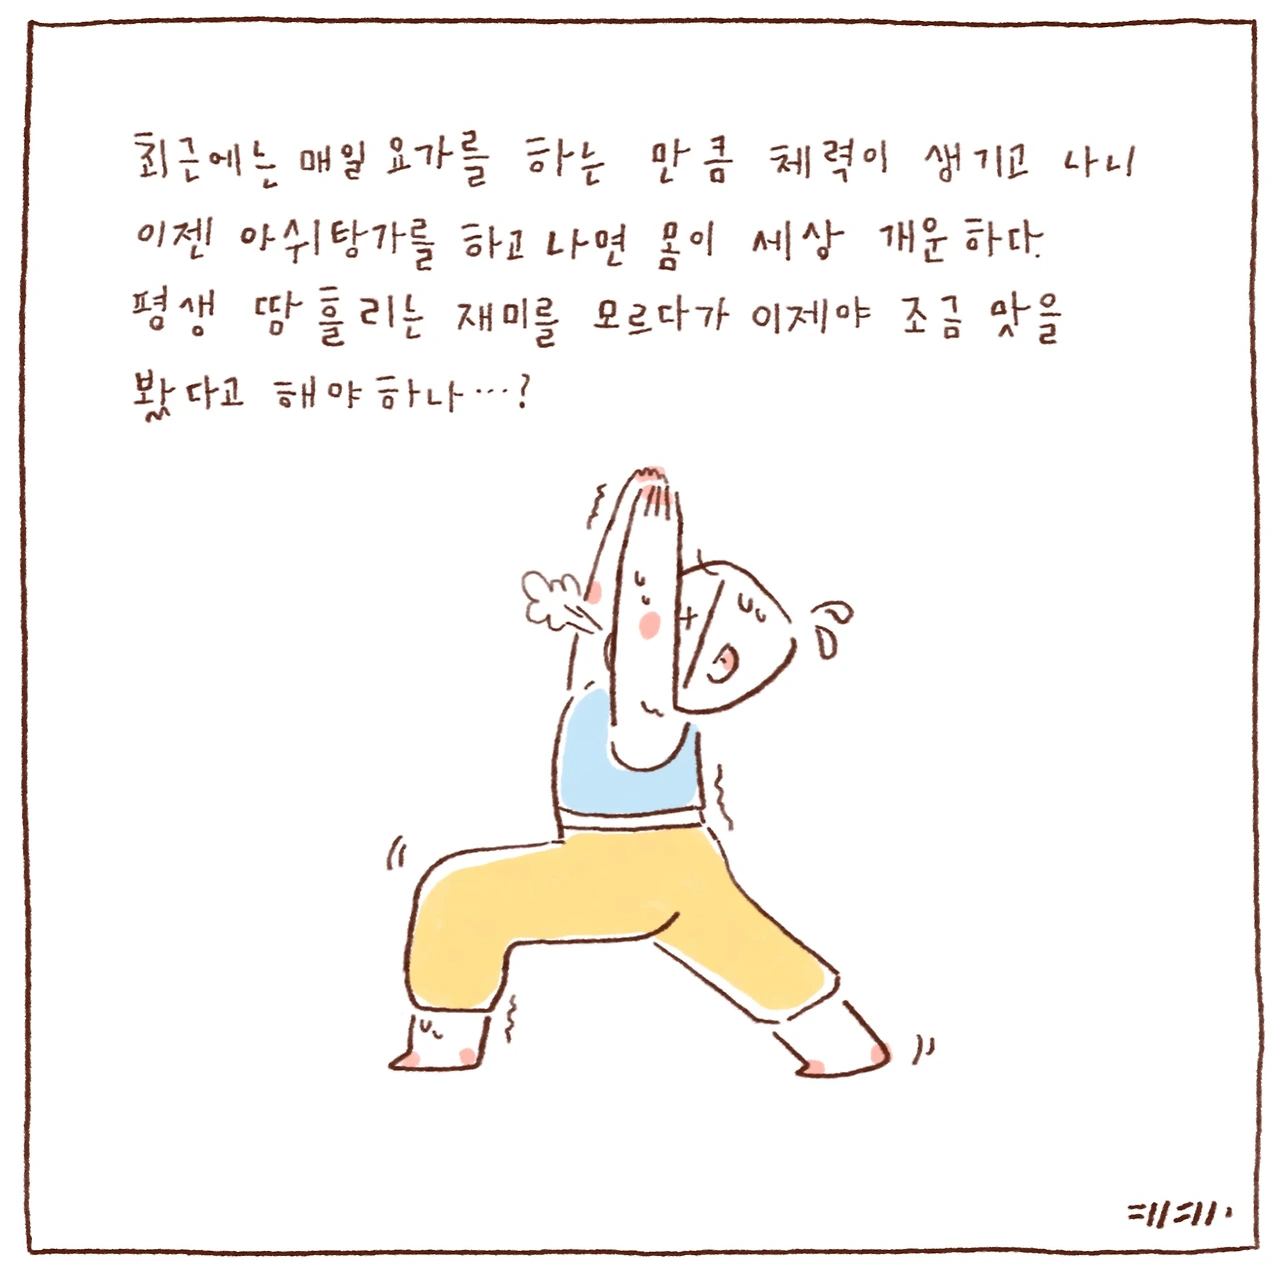 최근에는 매일 요가를 하는 만큼 체력이 생기고 나니
이젠 아쉬탕가를 하고 나면 몸이 세상 개운하다.
평생 땀 흘리는 재미를 모르다가 이제야 조금 맛을
봤다고 해야하나…?